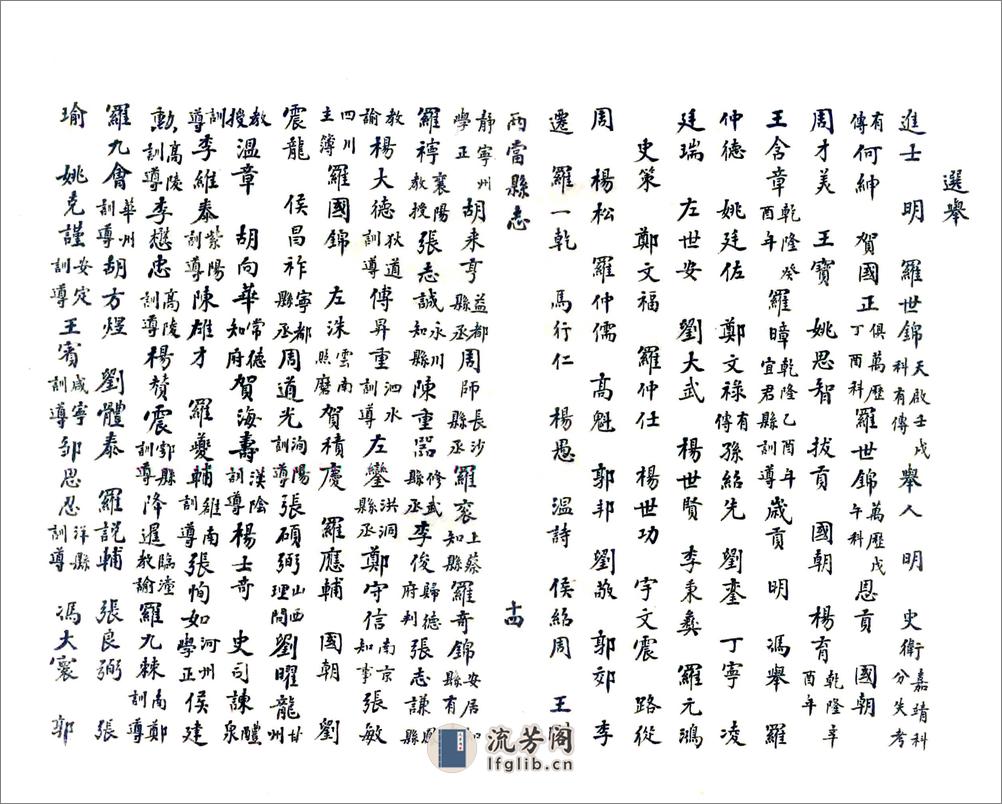 選舉
進士 明 羅世錦 天啟壬戌科有傳 舉人 明 史衛 嘉靖科分失考
有傳 何紳 賀國正 俱萬歷丁酉科 羅世錦 萬歷戊午科 恩貢 國朝
周才美 王寶 姚思智 拔貢 國朝 楊育 乾隆辛酉年
王含章 乾隆癸酉年 羅暲 乾隆乙酉年宜君縣訓導 歲貢 明 馮舉 羅
仲德 姚廷佐 鄭文祿 有傳 孫紹先 劉鑾 丁寧 凌
廷瑞 左世安 劉大武 楊世賢 李秉彝 羅元鴻
史策 鄭文福 羅仲仕 楊世功 宇文震 路從
周 楊松 羅仲儒 高魁 郭邦 劉敬 郭郊 李
遷 羅一乾 馬行仁 楊愚 溫詩 侯紹周 王
兩當縣志 十四
靜寧州學正 胡來亨 益都縣丞 周師 長沙縣丞 羅袞 上蔡知縣 羅奇錦 安居知縣有
羅禱 襄陽教授 張志誠 永川知縣 陳重器 修武縣丞 李俊 歸德府判 張志謙 縣
教諭 楊大德 狄道訓導 傅昇重 泗水訓導 左鑾 洪洞縣丞 鄭守信 南京知事 張敏
四川主簿 羅國錦 左洙 雲南照磨 賀積慶 羅應輔 國朝 劉
震龍 侯昌祚 寧都縣丞 周道光 洵陽訓導 張碩弼 山西理問 劉曜龍 甘州
教授 溫章 胡向華 常德知府 賀海壽 漢陰訓導 楊士奇 史司諫 醴泉
訓導 李維泰 紫陽訓導 陳雄才 羅夔輔 雒南訓導 張恂如 河州學正 侯建
勲 高陵訓導 李懋忠 高陵訓導 楊贊震 郭縣訓導 降遲 臨潼教諭 羅九棘 南鄭訓導
羅九會 華州訓導 胡方煜 劉體泰 羅説輔 張良弼 張
瑜 姚克謹 安定訓導 王賓 咸寧訓導 鄒思忍 洋縣訓導 馮大寰 郭
流芳阁
lfglib.cn